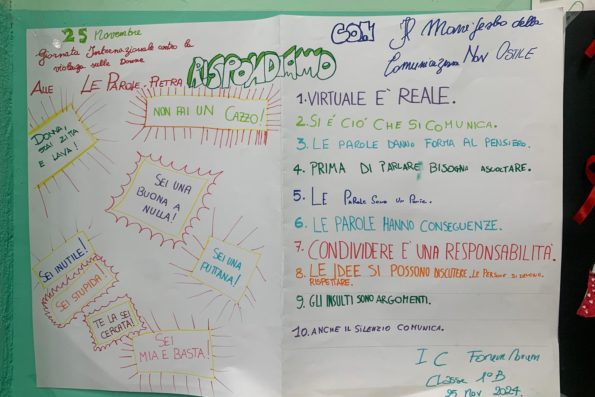 25 Novembre
Giornata Internazionale contro la
violenza sulle Donne
Alle LE PAROLE-PIETRA
RISPONDIAMO
NON FAI UN CAZZO!
DONNA,
STAI ZITA
E LAVA!
SEI UNA
BUONA A
NULLA!
SEI UNA
PUTTANA!
SEI INUTILE!
SEI STUPIDA!
TE LA SEI
CERCATA!
SEI
MIA E BASTA!
CON Il Manifesto della
Comunicazione NON OSTILE
1. VIRTUALE E' REALE.
2. SI É CIO' CHE SI COMUNICA.
3. LE PAROLE DANNO FORMA AL PENSIERO.
4. PRIMA DI PARLARE BISOGNA ASCOLTARE.
5. LE PAROLE SONO UN PONTE.
6. LE PAROLE HANNO CONSEGUENZE.
7. CONDIVIDERE E' UNA RESPONSABILITÀ.
8. LE IDEE SI POSSONO DISCUTERE. LE PERSONE SI DEVONO
RISPETTARE.
9. GLI INSULTI SONO ARGOMENTI.
10. ANCHE IL SILENZIO COMUNICA.
I C
Classe 1°B
25 Nov 2024.